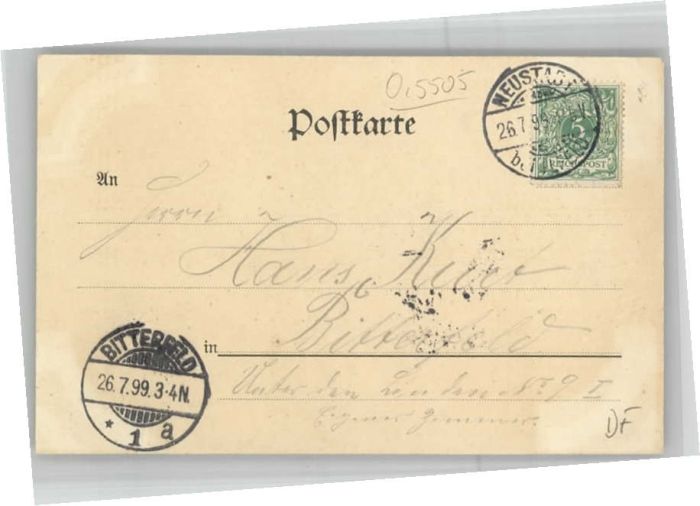 0,5505
Postkarte
NEUSTADT
26.7.99
5
REICHSPOST
An
Herrn
Hans
Bitterfeld
in
BITTERFELD
26.7.99.3-4N.
* 1 a
Unter den Linden No 9 I
DF